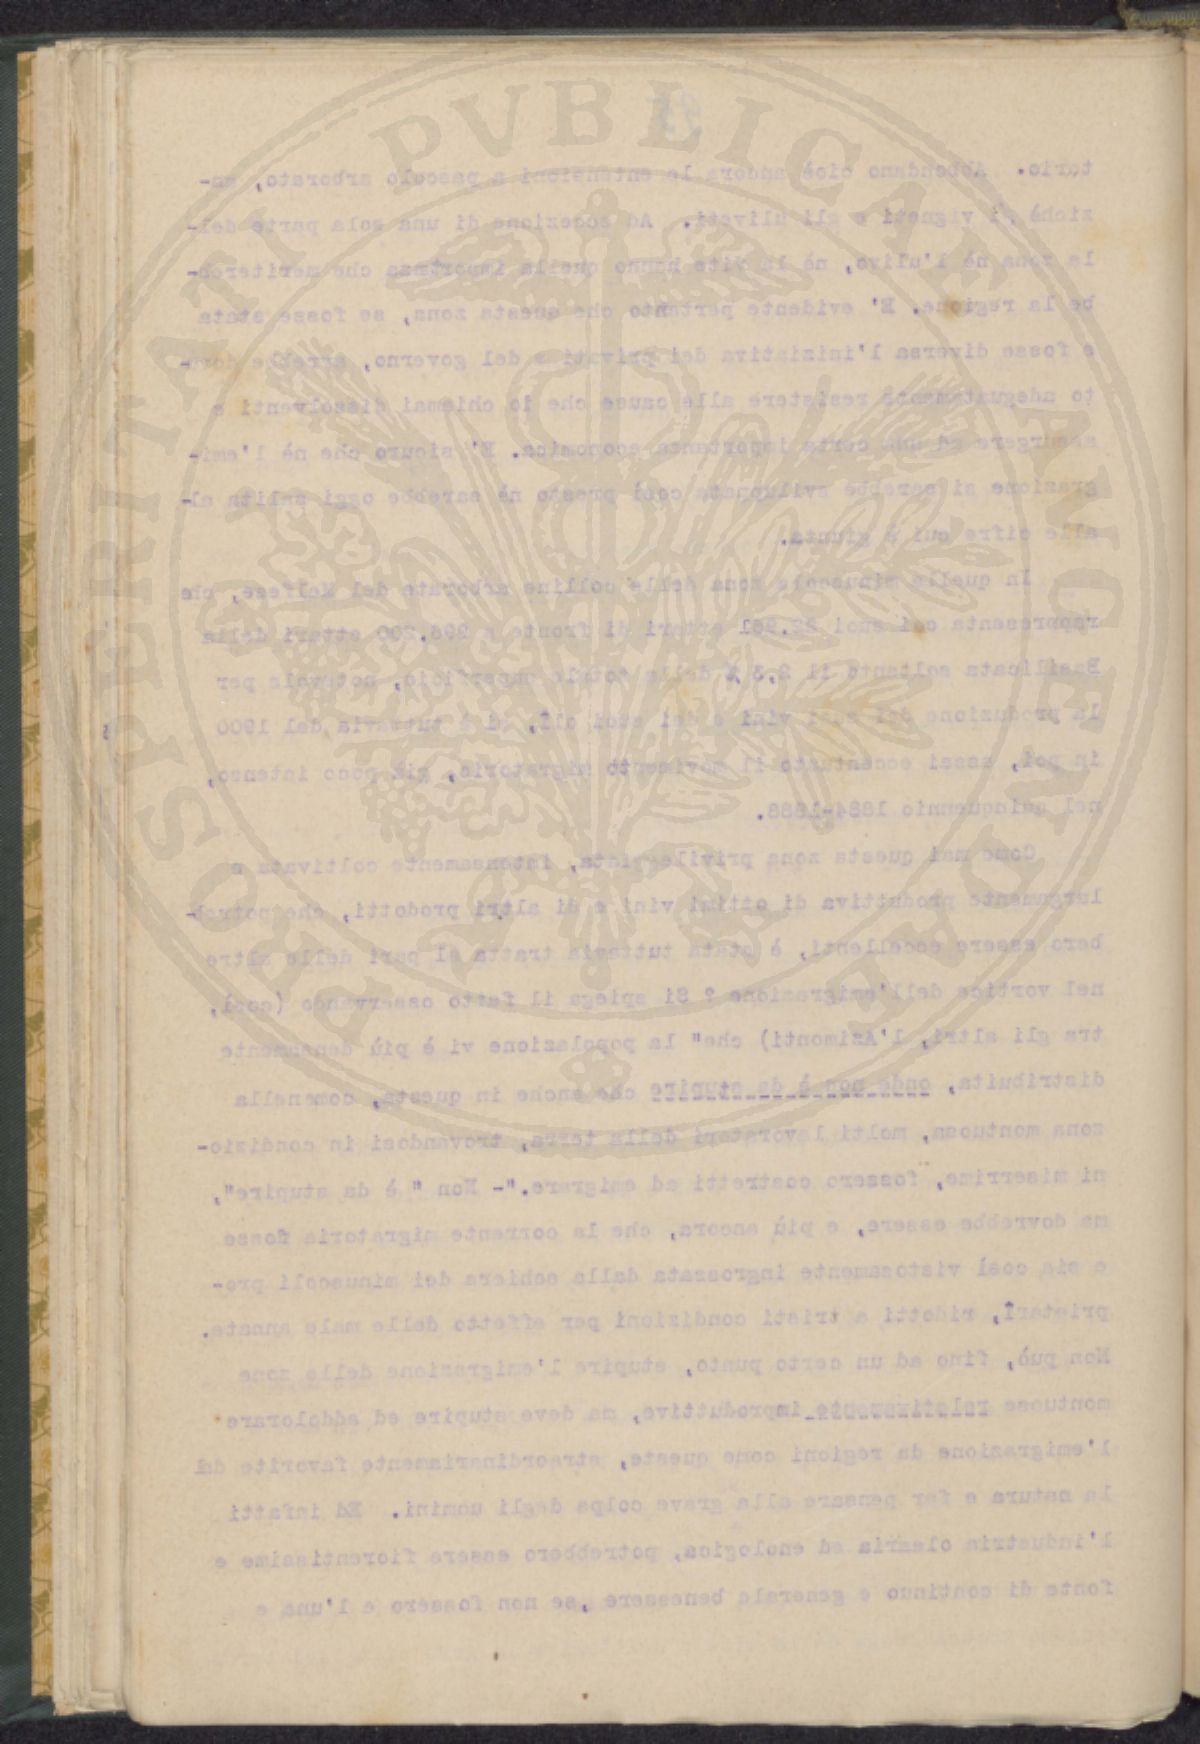 torio. Abbondano cioè ancora le estensioni a pascolo arborato, an-
zichè i vigneti e gli uliveti. Ad eccezione di una sola parte del-
la zona nè l'ulivo, nè la vite hanno quella importanza che meritereb-
be la regione. E' evidente pertanto che questa zona, se fosse stata
e fosse diversa l'iniziativa dei privati e del governo, avrebbe dovu-
to adeguatamente resistere alle cause che io chiamai dissolventi e
assurgere ad una certa importanza economica. E' sicuro che nè l'emi-
grazione si sarebbe sviluppata così presto nè sarebbe oggi salita al-
alle cifre cui è giunta.
In quella minuscola zona delle colline arborate del Melfese, che
rappresenta coi suoi 22.961 ettari di fronte a 996.200 ettari della
Basilicata soltanto il 2,3 % della totale superficie, notevole per
la produzione dei suoi vini e dei suoi olî, si è tuttavia dal 1900
in poi, assai accentuato il movimento migratorio, già poco intenso,
nel quinquennio 1884-1888.
Come mai questa zona privilegiata, intensamente coltivata e
largamente produttiva di ottimi vini e di altri prodotti, che potreb-
bero essere eccellenti, è stata tuttavia tratta al pari delle altre
nel vortice dell'emigrazione ? Si spiega il fatto osservando (così,
tra gli altri, l'Azimonti) che" la popolazione vi è più densamente
distribuita, onde non è da stupire che anche in questa, comenella
zona montuosa, molti lavoratori della terra, trovandosi in condizio-
ni miserrime, fossero costretti ad emigrare."- Non " è da stupire",
ma dovrebbe essere, e più ancora, che la corrente migratoria fosse
e sia così vistosamente ingrossata dalla schiera dei minuscoli pro-
prietarî, ridotti a tristi condizioni per effetto delle male annate.
Non può, fino ad un certo punto, stupire l'emigrazione delle zone
montuose relativamente improduttive, ma deve stupire ed addolorare
l'emigrazione da regioni come queste, straordinariamente favorite dal
la natura e far pensare alla grave colpa degli uomini. Ed infatti
l'industria olearia ed enologica, potrebbero essere fiorentissime e
fonte di continuo e generale benessere ,se non fossero e l'una e
PROSPERITATI PVBLICAE AVGENDAE